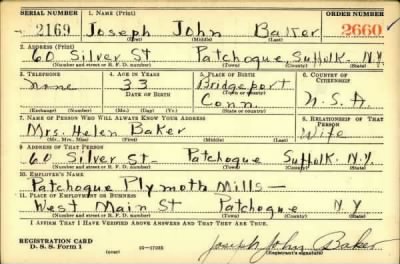 SERIAL NUMBER 1. NAME (Print) ORDER NUMBER
2169 Joseph John Baker 2660
(First) (Middle) (Last)
2. ADDRESS (Print)
60 Silver St Patchogue Suffolk N.Y.
(Number and street or R. F. D. number) (Town) (County) (State)
3. TELEPHONE 4. AGE IN YEARS 5. PLACE OF BIRTH 6. COUNTRY OF CITIZENSHIP
none 33 Bridgeport
DATE OF BIRTH (Town or county)
Conn. U.S.A.
(Exchange) (Number) (Mo.) (Day) (Yr.) (State or country)
7. NAME OF PERSON WHO WILL ALWAYS KNOW YOUR ADDRESS 8. RELATIONSHIP OF THAT PERSON
Mrs. Helen Baker Wife
(Mr., Mrs., Miss) (First) (Middle) (Last)
9. ADDRESS OF THAT PERSON
60 Silver St- Patchogue Suffolk N.Y.
(Number and street or R. F. D. number) (Town) (County) (State)
10. EMPLOYER'S NAME
Patchogue Plymoth Mills-
11. PLACE OF EMPLOYMENT OR BUSINESS
West Main St Patchogue NY
(Number and street or R. F. D. number) (Town) (County) (State)
I AFFIRM THAT I HAVE VERIFIED ABOVE ANSWERS AND THAT THEY ARE TRUE.
REGISTRATION CARD
D. S. S. Form 1 (over) Joseph John Baker
(Registrant's signature)